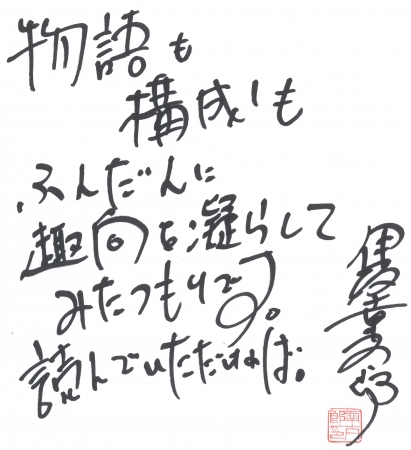 物語も
構成も
ふんだんに
趣向を凝らして
みたつもりです。
読んでいただければ。